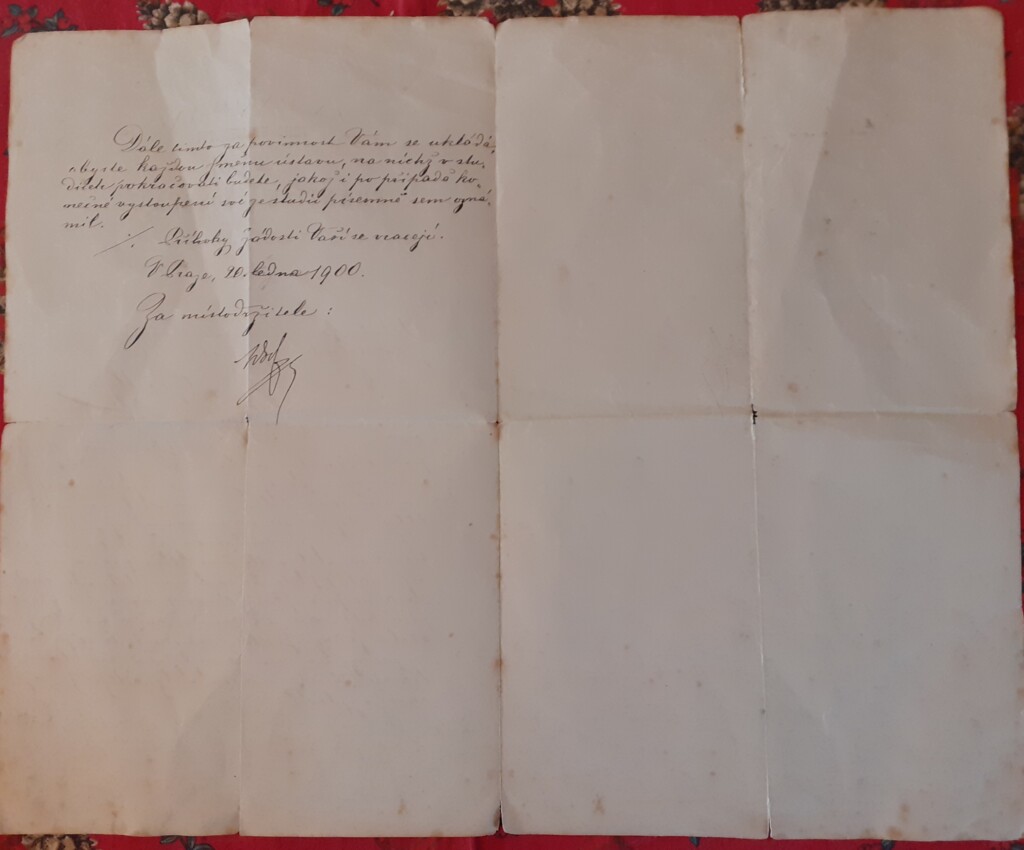 Dále tímto za povinnost Vám se ukládá,
abyste každou změnu ústavu, na nichž v stu-
diích pokračovati budete, jakož i po případě ko-
nečné vystoupení své ze studií písemně sem ozná-
mil.
./. Přílohy žádosti Vaší se vracejí.
V Praze, 20. ledna 1900.
Za místodržitele: